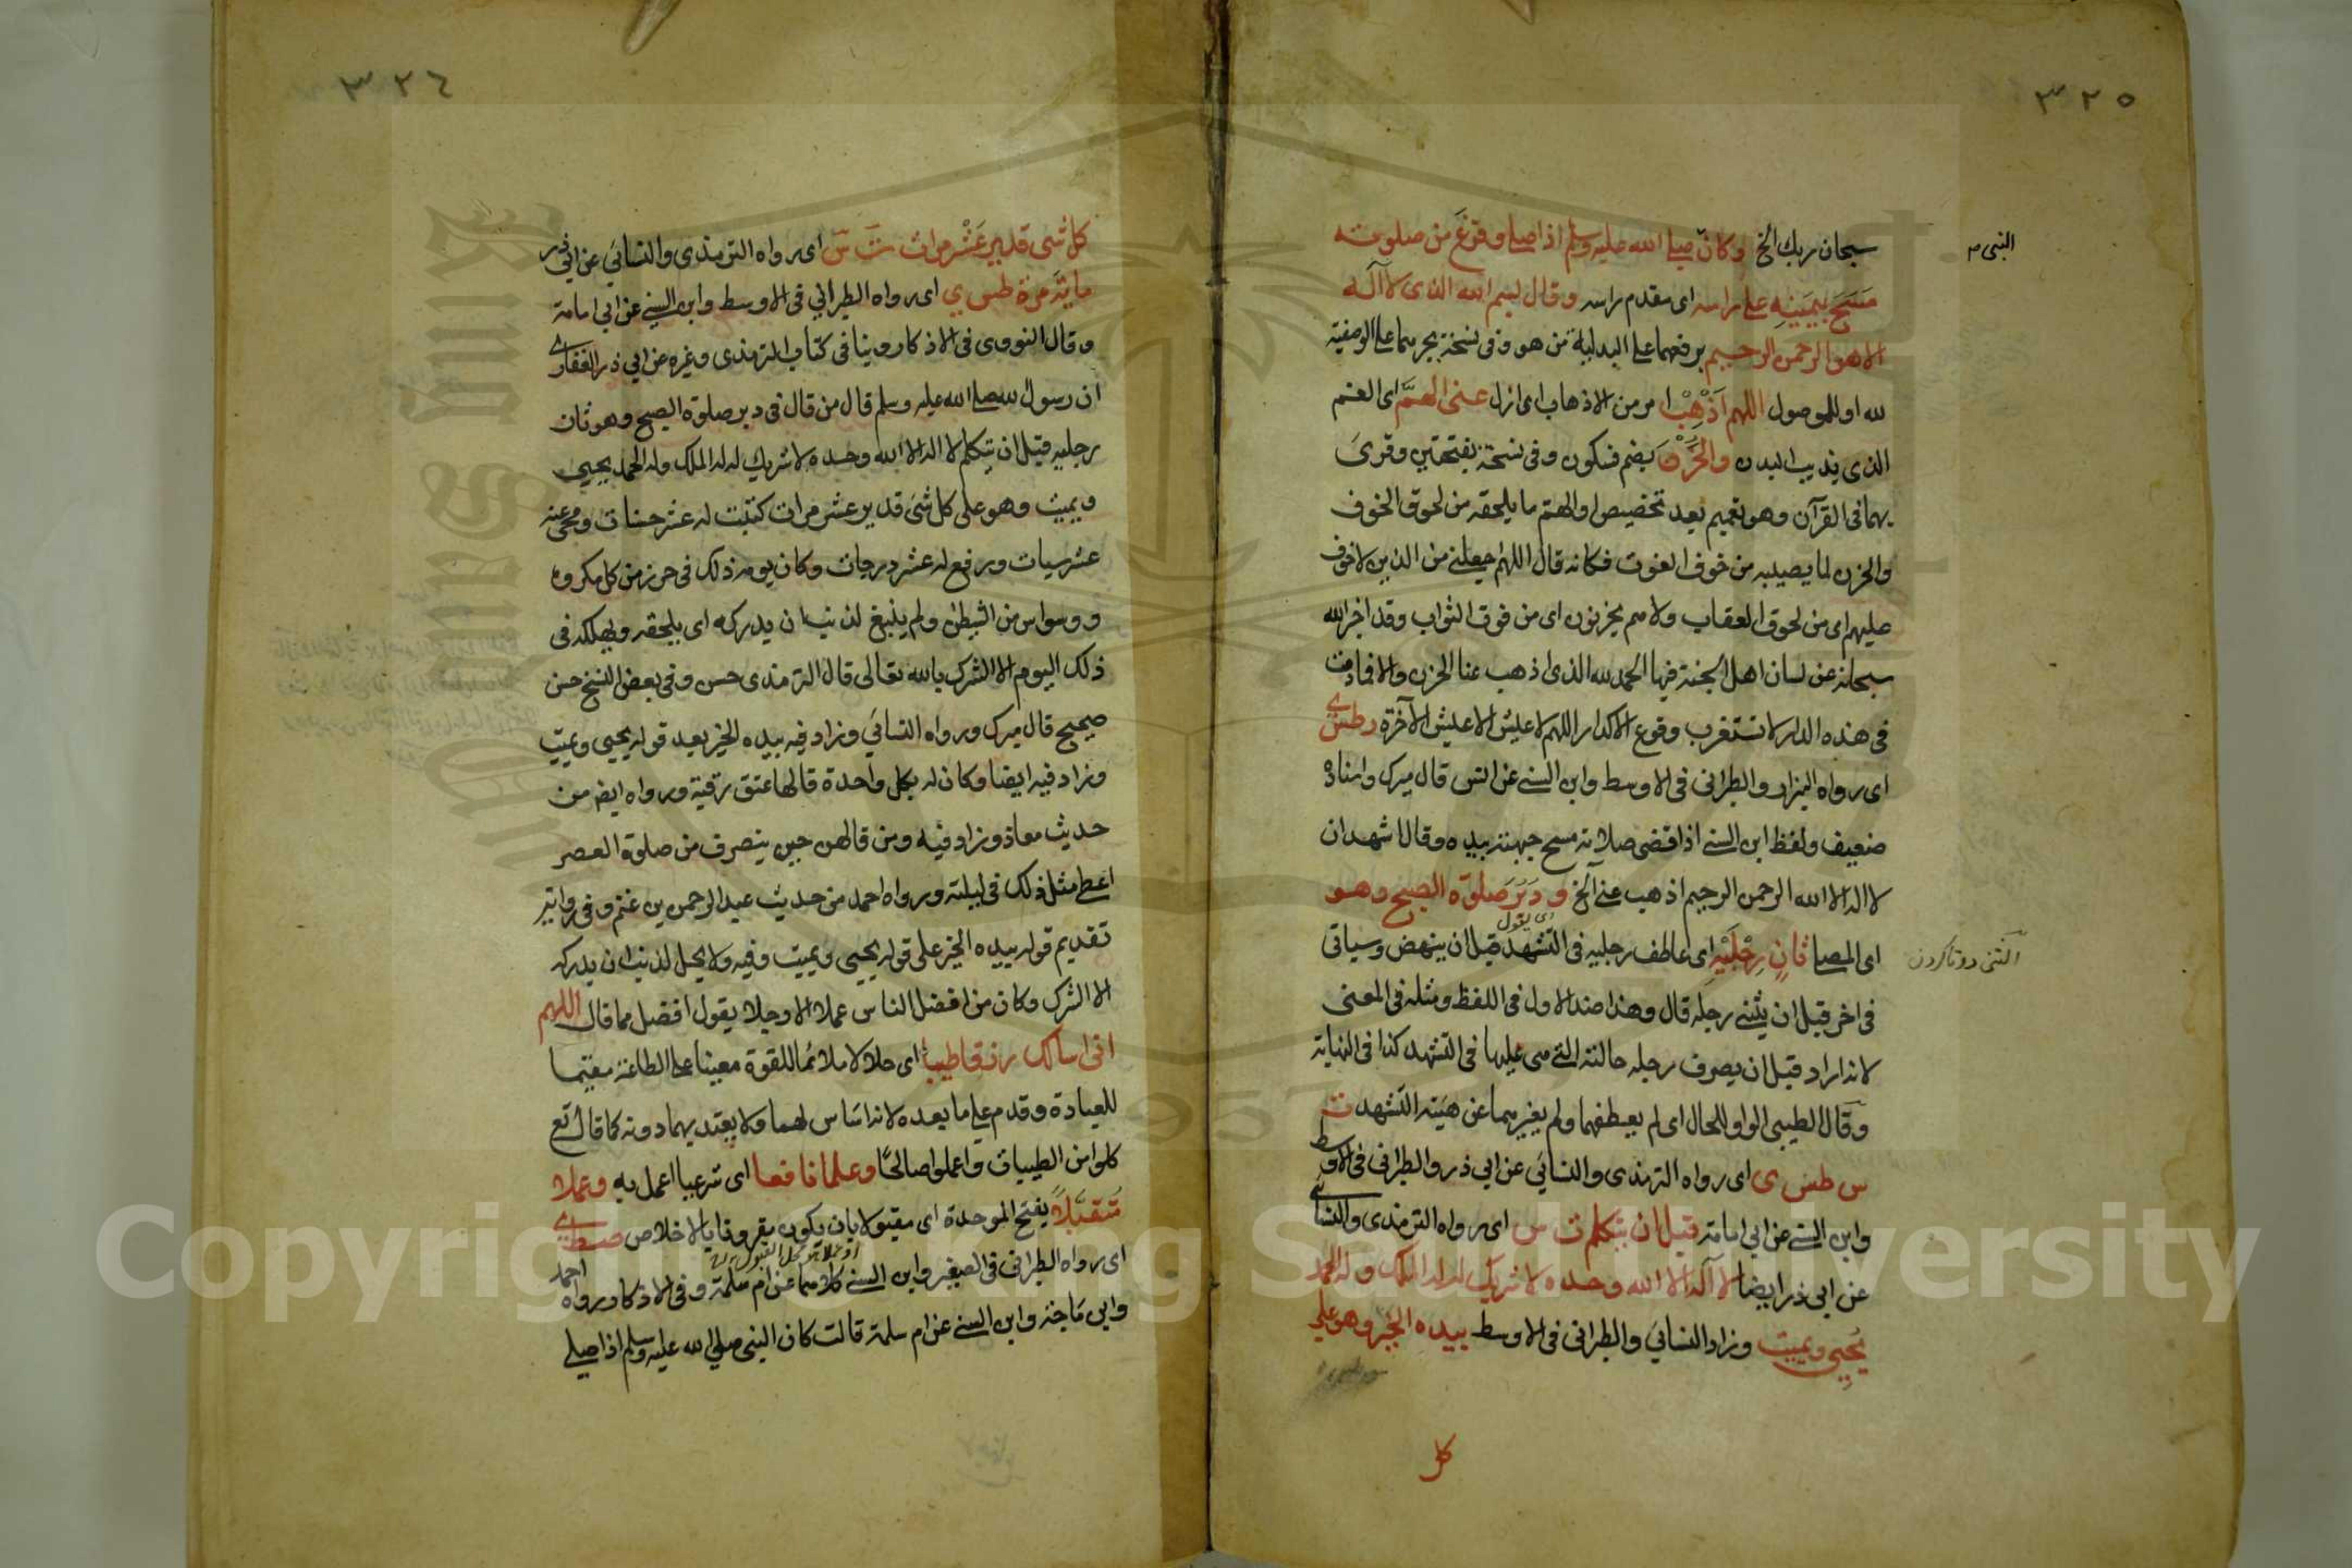 ٣٢٥
النبي م
سبحان ربك الخ وكان صلى الله عليه وسلم اذا صلى وفرغ من صلوته
مسح بيمينه على راسه اى مقدم راسه وقال بسم الله الذى لا اله
الا هو الرحمن الرحيم برفعهما على البدلية من هو وفى نسخة بجرهما على الوصفية
لله او للموصول اللهم اذهب امر من الاذهاب اى ازل عنى الهم اى الغم
الذى يذيب البدن والحزن بضم فسكون وفى نسخة بفتحتين وقرئ
بهما فى القرآن وهو تعميم بعد تخصيص او الهم ما يلحقه من لحوق الخوف
والحزن لما يصيبه من خوف الفوت فكانه قال اللهم اجعلنى من الذين لا خوف
عليهم اى من لحوق العقاب ولا هم يحزنون اى من فوق الثواب وقد اخبر الله
سبحانه عن لسان اهل الجنة فيها الحمد لله الذى اذهب عنا الحزن والا فما دمت
فى هذه الدار لا تستغرب وقوع الاكدار اللهم لا عيش الا عيش الآخرة ر طس ى
اى رواه البزار والطبرانى فى الاوسط وابن السنى عن انس قال ميرك واسناده
ضعيف ولفظ ابن السنى اذا قضى صلاته مسح جبهته بيده وقال اشهد ان
لا اله الا الله الرحمن الرحيم اذهب عنى الخ و دبر صلوة الصبح وهو
اى يقول
اى المصلى ثان رجليه اى عاطف رجليه فى التشهد قبل ان ينهض وسياتى
الثنى دوتا كردن
فى اخر قبل ان يثنى رجله قال وهذا ضد الاول فى اللفظ ومثله فى المعنى
لانه اراد قبل ان يصرف رجله حالته التى هى عليها فى التشهد كذا فى النهاية
وقال الطيبى الواو للحال اى لم يعطفهما ولم يغيرهما عن هيئة التشهد ت
س طس ى اى رواه الترمذى والنسائى عن ابى ذر والطبرانى فى الاوسط
وابن السنى عن ابى امامة قبل ان يتكلم ت س اى رواه الترمذى والنسائى
عن ابى ذر ايضا لا اله الا الله وحده لا شريك له له الملك وله الحمد
يحيى ويميت وزاد النسائى والطبرانى فى الاوسط بيده الخير وهو على
كل
٣٢٦
كل شى قدير عشر مرات ت س اى رواه الترمذى والنسائى عن ابى ذر
مائة مرة طس ى اى رواه الطبرانى فى الاوسط وابن السنى عن ابى امامة
وقال النووى فى الاذكار روينا فى كتاب الترمذى وغيره عن ابى ذر الغفارى
ان رسول الله صلى الله عليه وسلم قال من قال فى دبر صلوة الصبح وهو ثان
رجليه قبل ان يتكلم لا اله الا الله وحده لا شريك له له الملك وله الحمد يحيى
ويميت وهو على كل شئ قدير عشر مرات كتبت له عشر حسنات ومحى عنه
عشر سيات ورفع له عشر درجات وكان يومه ذلك فى حرز من كل مكروه
ووسواس من الشيطن ولم ينبغ لذنب ان يدركه اى يلحقه ويهلكه فى
ذلك اليوم الا الشرك بالله تعالى قال الترمذى حسن وفى بعض النسخ حسن
صحيح قال ميرك ورواه النسائى وزاد فيه بيده الخير بعد قوله يحيى ويميت
وزاد فيه ايضا وكان له بكل واحدة قالها عتق رقبة ورواه ايضا من
حديث معاذ وزاد فيه ومن قالهن حين ينصرف من صلوة العصر
اعطى مثل ذلك فى ليلته ورواه احمد من حديث عبد الرحمن بن غنم وفى روايته
تقديم قوله بيده الخير على قوله يحيى ويميت وفيه ولا يحل لذنب ان يدركه
الا الشرك وكان من افضل الناس عملا الا رجلا يقول افضل مما قال اللهم
انى اسالك رزقا طيبا اى حلالا ملائما للقوة معينا على الطاعة مقيما
للعبادة وقدم على ما بعده لانه اساس لهما ولا يعتد بهما دونه كما قال تع
كلوا من الطيبات واعملوا صالحا وعلما نافعا اى شرعيا اعمل به وعملا
متقبلا بفتح الموحدة اى مقبولا بان يكون مقرونا بالاخلاص صط ى
اى رواه الطبرانى فى الصغير وابن السنى كلاهما عن ام سلمة وفى الاذكار ورواه احمد
وابن ماجة وابن السنى عن ام سلمة قالت كان النبى صلى الله عليه وسلم اذا صلى
Copyright © King Saud University